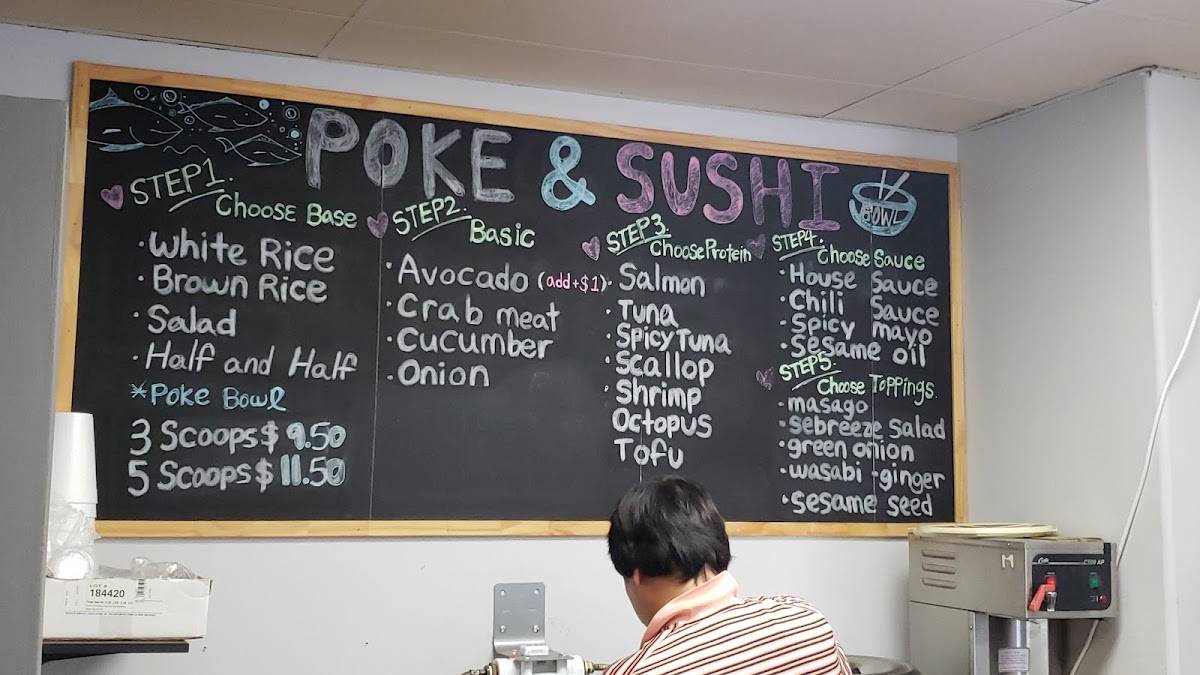 POKE & SUSHI
BOWL
STEP1.
Choose Base
· White Rice
· Brown Rice
· Salad
· Half and Half
*Poke Bowl
3 Scoops $ 9.50
5 Scoops $ 11.50
STEP2.
Basic
· Avocado (add+$1)
· Crab meat
· Cucumber
· Onion
STEP3.
Choose Protein
· Salmon
· Tuna
· Spicy Tuna
· Scallop
· Shrimp
Octopus
Tofu
STEP4.
Choose Sauce
· House Sauce
· Chili Sauce
· Spicy mayo
· Sesame oil
STEP5.
Choose Toppings.
· masago
· sebreeze salad
· green onion
· wasabi · ginger
· sesame seed
LOT #
184420
C500 AP